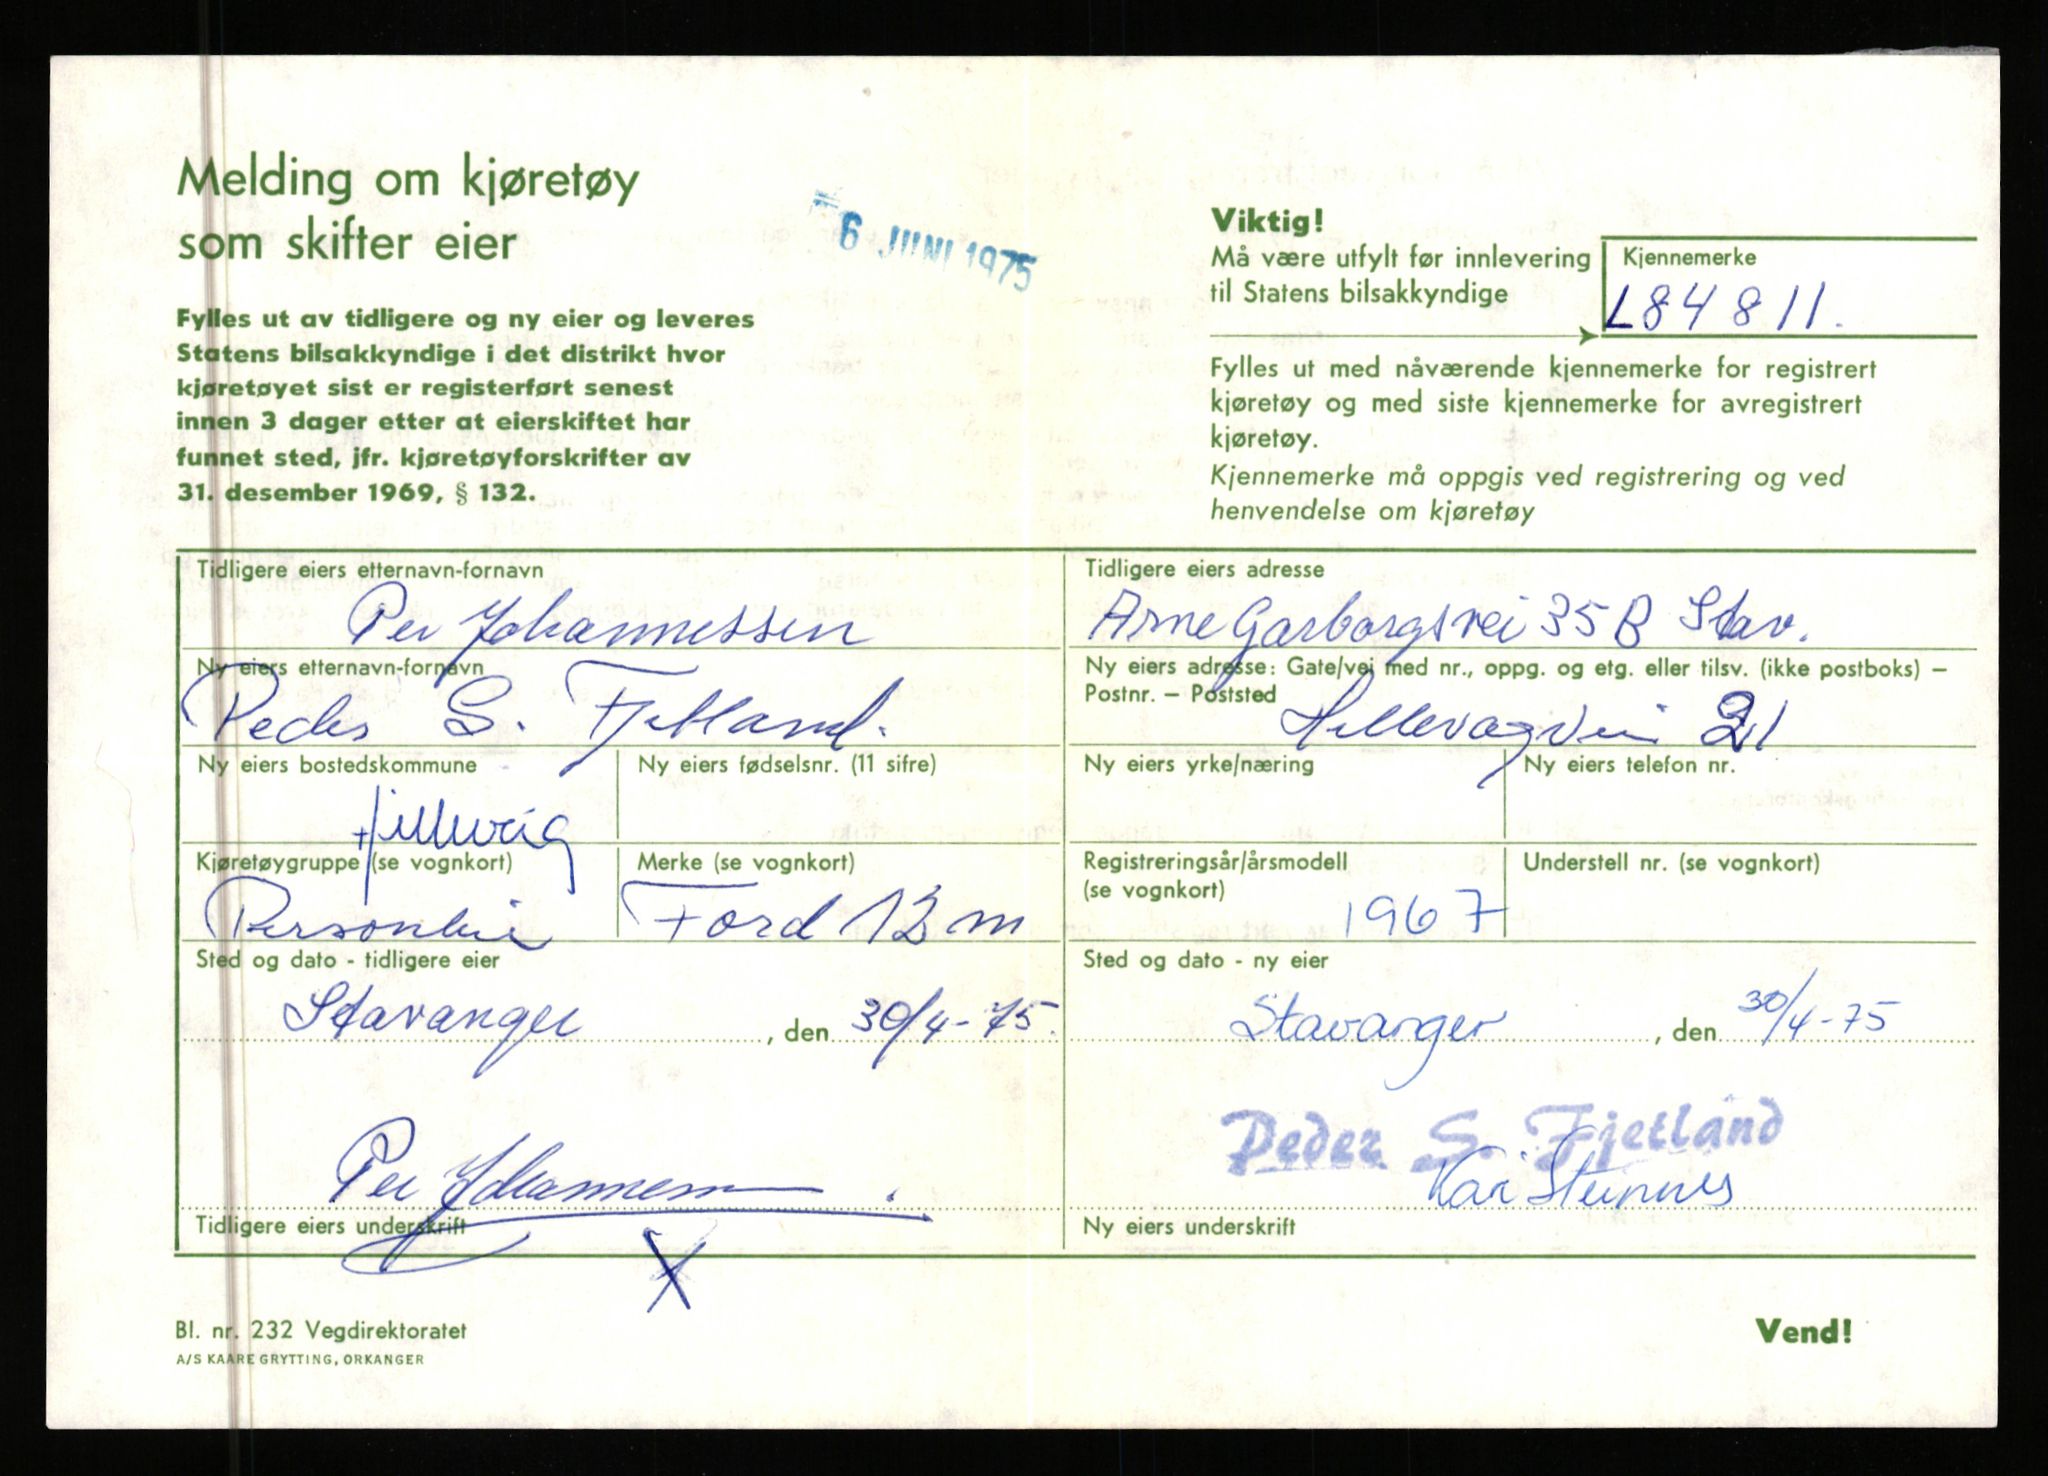 Melding om kjøretøy
som skifter eier
6 JUNI 1975
Fylles ut av tidligere og ny eier og leveres
Statens bilsakkyndige i det distrikt hvor
kjøretøyet sist er registerført senest
innen 3 dager etter at eierskiftet har
funnet sted, jfr. kjøretøyforskrifter av
31. desember 1969, § 132.
Viktig!
Må være utfylt før innlevering
til Statens bilsakkyndige
Kjennemerke
L84811.
Fylles ut med nåværende kjennemerke for registrert
kjøretøy og med siste kjennemerke for avregistrert
kjøretøy.
Kjennemerke må oppgis ved registrering og ved
henvendelse om kjøretøy
Tidligere eiers etternavn-fornavn
Per Johannessen
Tidligere eiers adresse
Arne Garborgsvei 35 B Stav.
Ny eiers etternavn-fornavn
Peder S. Fjetland.
Ny eiers adresse: Gate/vei med nr., oppg. og etg. eller tilsv. (ikke postboks) –
Postnr. – Poststed
Hillevågveien 21
Ny eiers bostedskommune
Hillevåg
Ny eiers fødselsnr. (11 sifre)
Ny eiers yrke/næring
Ny eiers telefon nr.
Kjøretøygruppe (se vognkort)
Personbil
Merke (se vognkort)
Ford 12 m
Registreringsår/årsmodell
(se vognkort)
1967
Understell nr. (se vognkort)
Sted og dato - tidligere eier
Stavanger, den 30/4-75.
Sted og dato - ny eier
Stavanger, den 30/4-75
Per Johannessen
Tidligere eiers underskrift
X
Peder S. Fjetland
Kari
Ny eiers underskrift
Bl. nr. 232 Vegdirektoratet
A/S KAARE GRYTTING, ORKANGER
Vend!